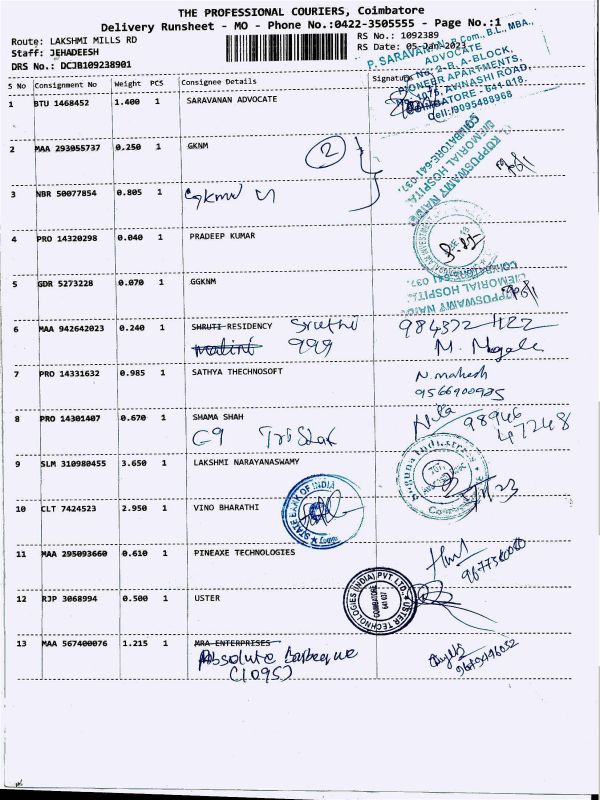 THE PROFESSIONAL COURIERS, Coimbatore
Delivery Runsheet - MO - Phone No.:0422-3505555 - Page No.:1
Route: LAKSHMI MILLS RD
RS No.: 1092389
Staff: JEHADEESH
RS Date: 05-Jan-2023
DRS No.: DCJB109238901
S No Consignment No Weight PCS Consignee Details Signature
P. SARAVANAN, B.Com., B.L., MBA.,
ADVOCATE
No: 2-B, A-BLOCK,
PIONEER APARTMENTS,
1075, AVINASHI ROAD,
COIMBATORE - 641 018.
Cell: 9095488968
1 BTU 1468452 1.400 1 SARAVANAN ADVOCATE
2 MAA 293055737 0.250 1 GKNM
2
KUPPUSWAMY NAIDU
MEMORIAL HOSPITAL
COIMBATORE-641 037.
3 NBR 50077854 0.805 1
4 PRO 14320298 0.040 1 PRADEEP KUMAR
5 GDR 5273228 0.070 1 GGKNM
COIMBATORE-641 037.
MEMORIAL HOSPITAL
KUPPUSWAMY NAIDU
6 MAA 942642023 0.240 1 SHRUTI RESIDENCY Sruthi
malini 999
M.
7 PRO 14331632 0.985 1 SATHYA THECHNOSOFT
N. mahesh
8 PRO 14301407 0.670 1 SHAMA SHAH
G9 Tristar
Nila 98946
47248
9 SLM 310980455 3.650 1 LAKSHMI NARAYANASWAMY
10 CLT 7424523 2.950 1 VINO BHARATHI
STATE BANK OF INDIA
11 MAA 295093660 0.610 1 PINEAXE TECHNOLOGIES
12 RJP 3068994 0.500 1 USTER
USTER TECHNOLOGIES (INDIA) PVT LTD.
COIMBATORE
641 037
13 MAA 567400076 1.215 1 MRA ENTERPRISES
Absolute Barbeque
(1095)